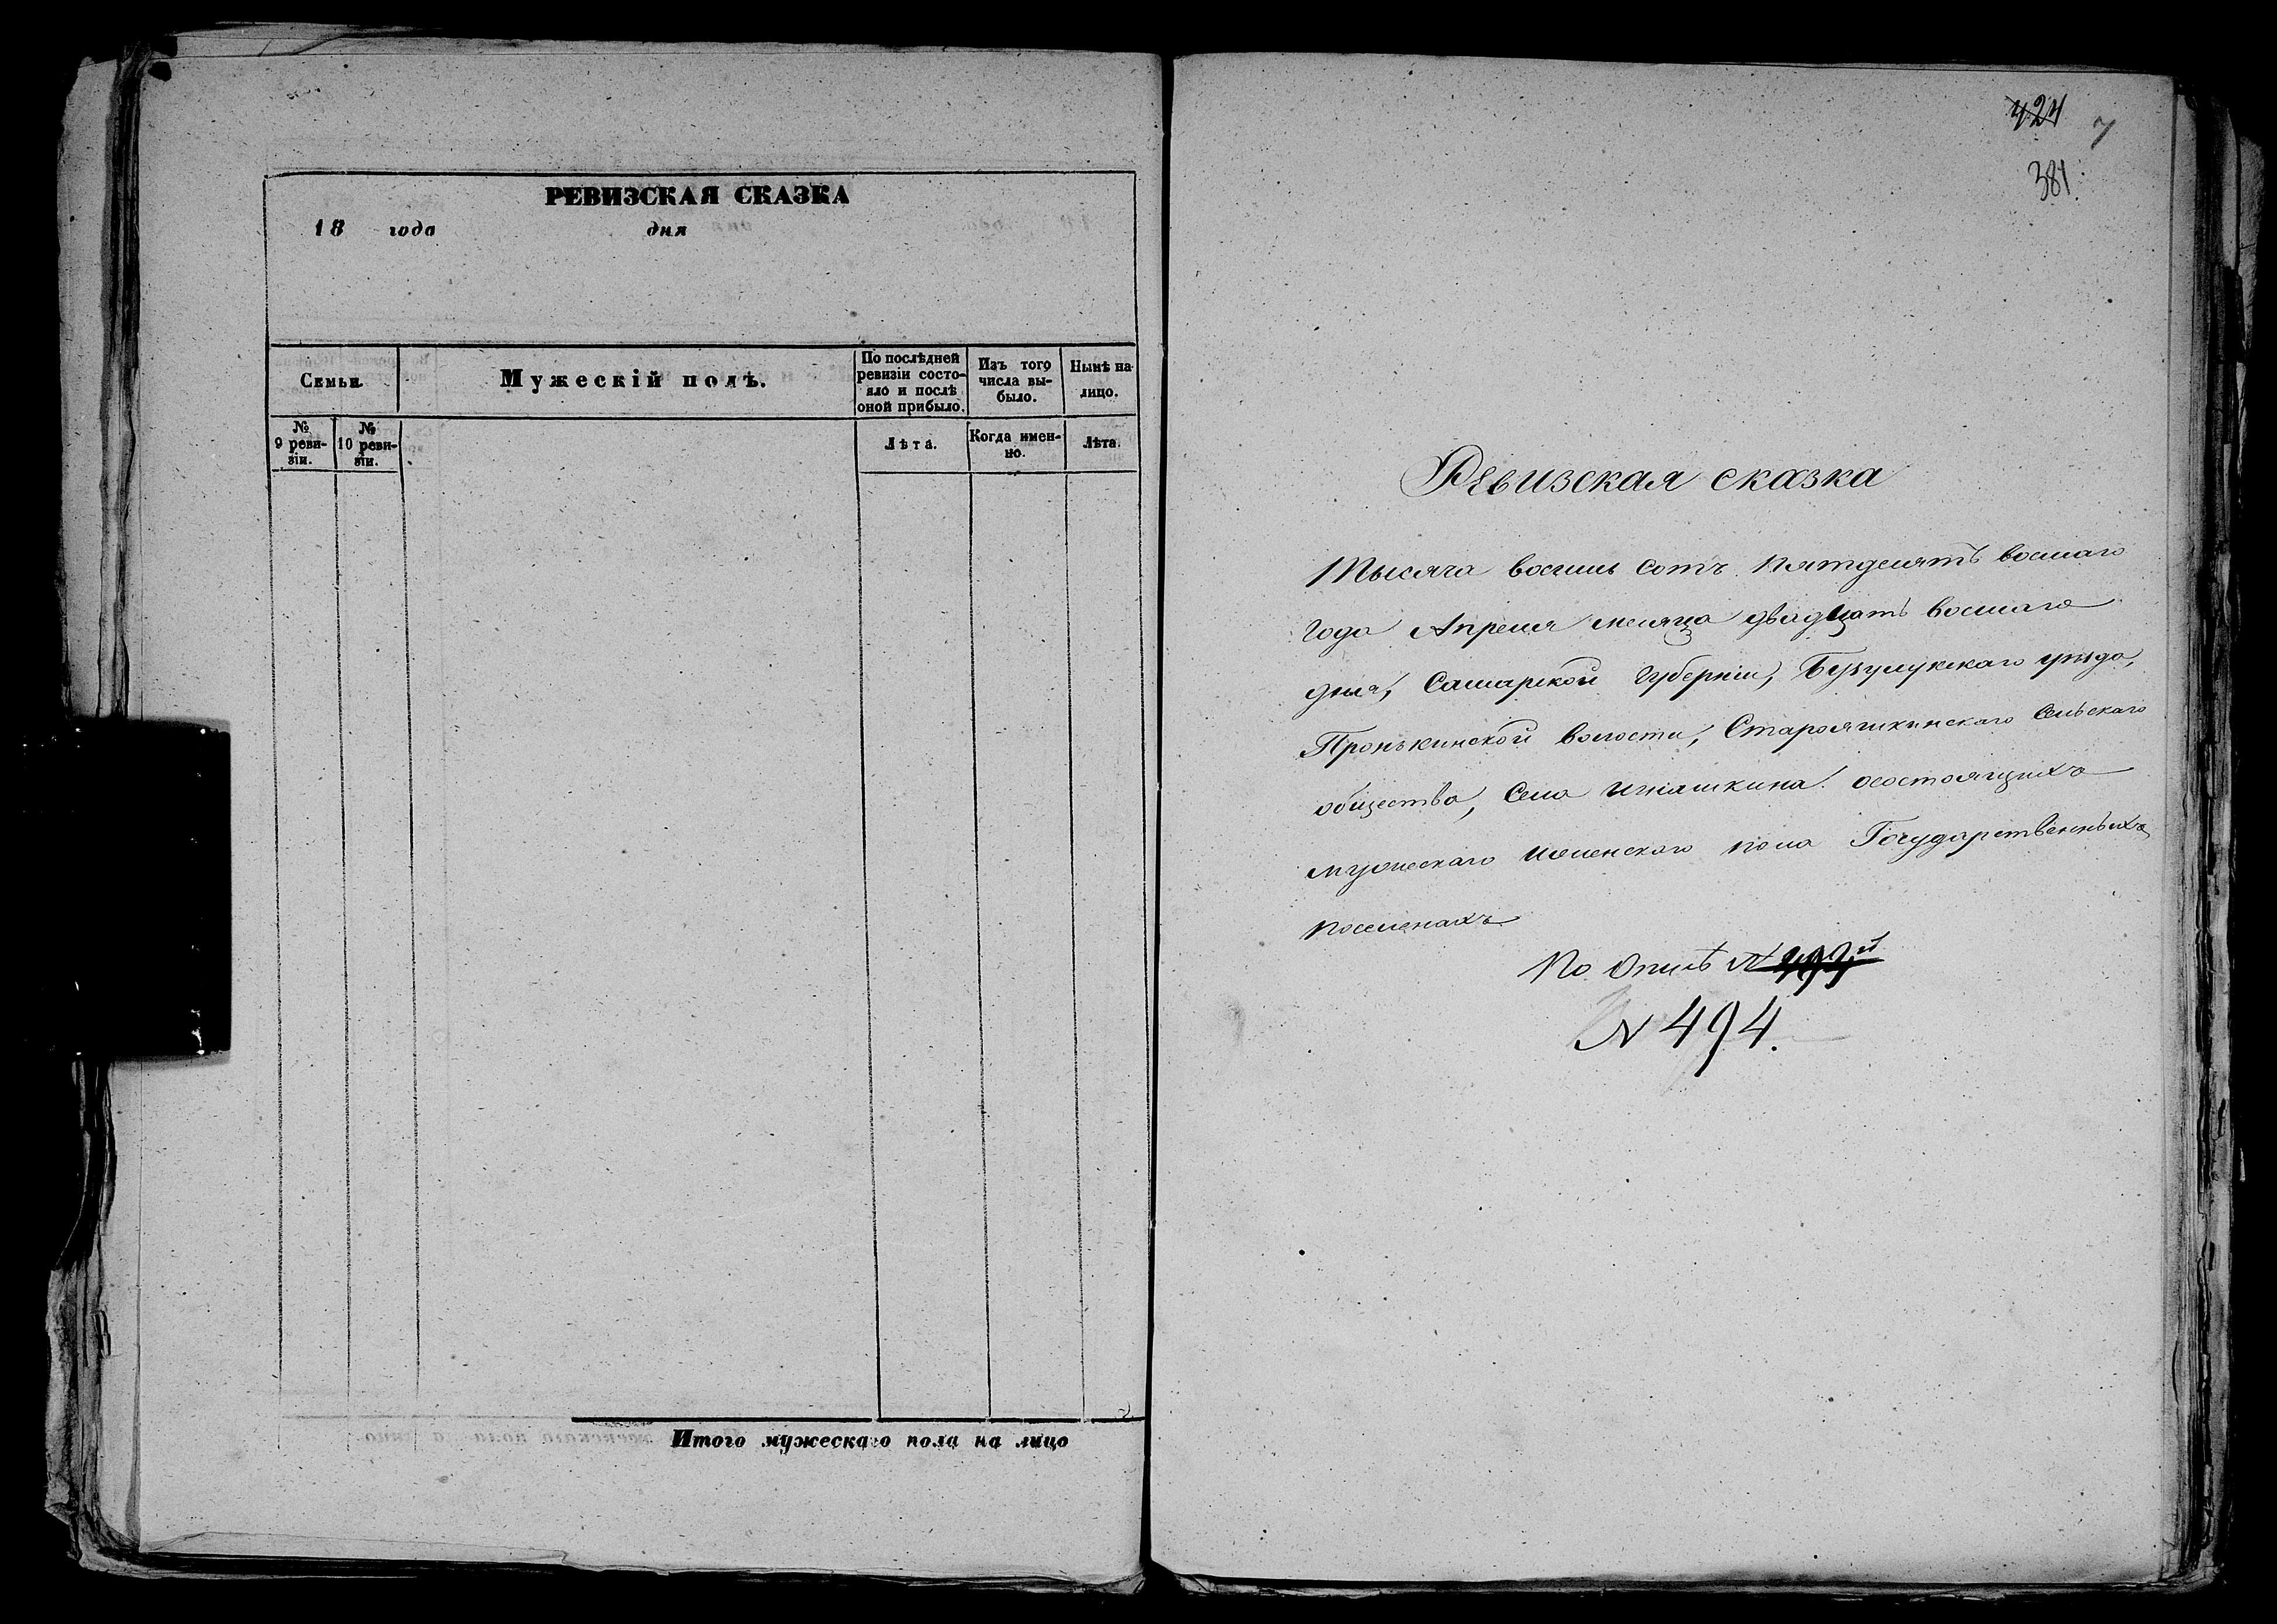 РЕВИЗСКАЯ СКАЗКА
18 года дня
Семьи.
Мужескій полъ.
По послѣдней ревизіи состо-
яло и послѣ
оной прибыло.
Изъ того
числа вы-
было.
Нынѣ на
лицо.
№
9 реви-
зіи.
№
10 реви-
зіи.
Лѣта.
Когда имен-
но.
Лѣта.
Итого мужескаго пола на лицо
424 7
381.
Ревизская сказка
Тысяча восемь сотъ пятдесятъ восмаго
года Апреля месяца двадцать восмаго
дня, Самарской Губерніи, Бузулукскаго уезда,
Пронькинской волости, Старояшкинскаго Сельскаго
общества, Села Игняшкина. осостоящихъ
мужескаго женскаго пола Государственныхъ
поселенахъ
По Описѣ №
№ 494.